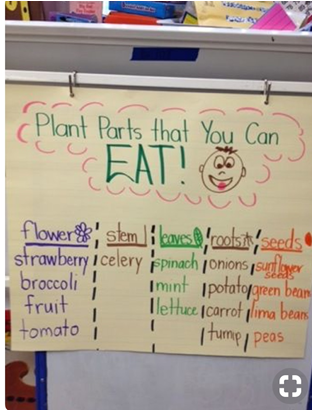 Plant Parts that You Can
EAT!
flower stem leaves roots seeds
strawberry celery spinach onions sunflower seeds
broccoli mint potato green bean
fruit lettuce carrot lima beans
tomato turnip peas